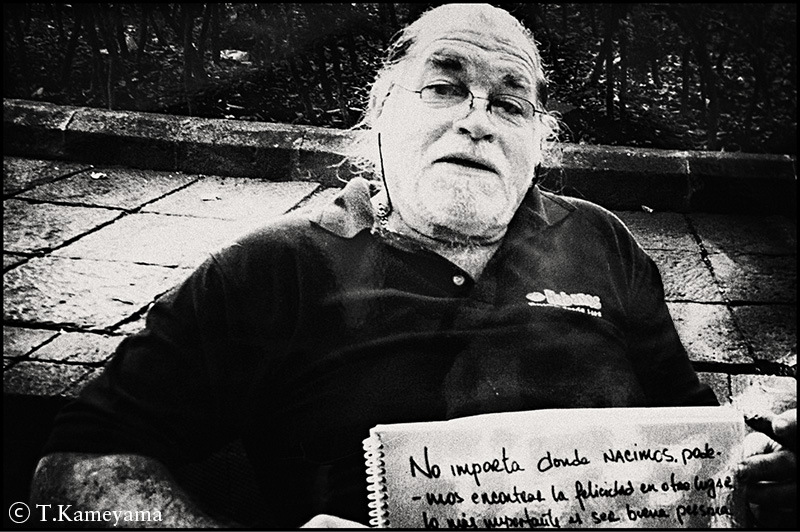 No importa donde NACIMOS. pode-
-mos encontrar la felicidad en otro lugar
lo más importante es ser buena persona
© T.Kameyama